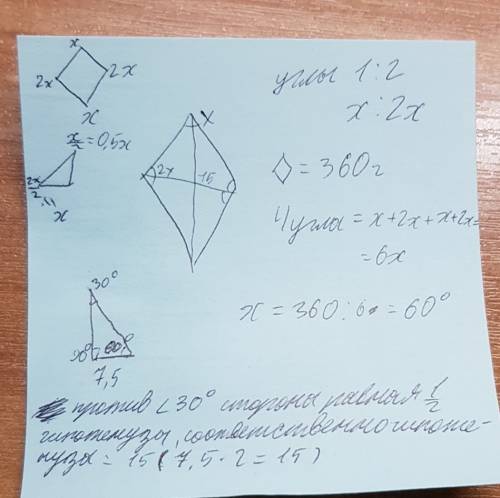 x
2x
2x
x
x/2 = 0,5x
2x/2
x
x
2x
15
углы 1:2
x : 2x
= 360г
4 угла = x+2x+x+2x=
= 6x
x = 360 : 6 = 60°
30°
90°
60°
7,5
против ∠30° стороны равная 1/2
гипотенузы, соответственно гипоте-
нуза = 15 (7,5 · 2 = 15)